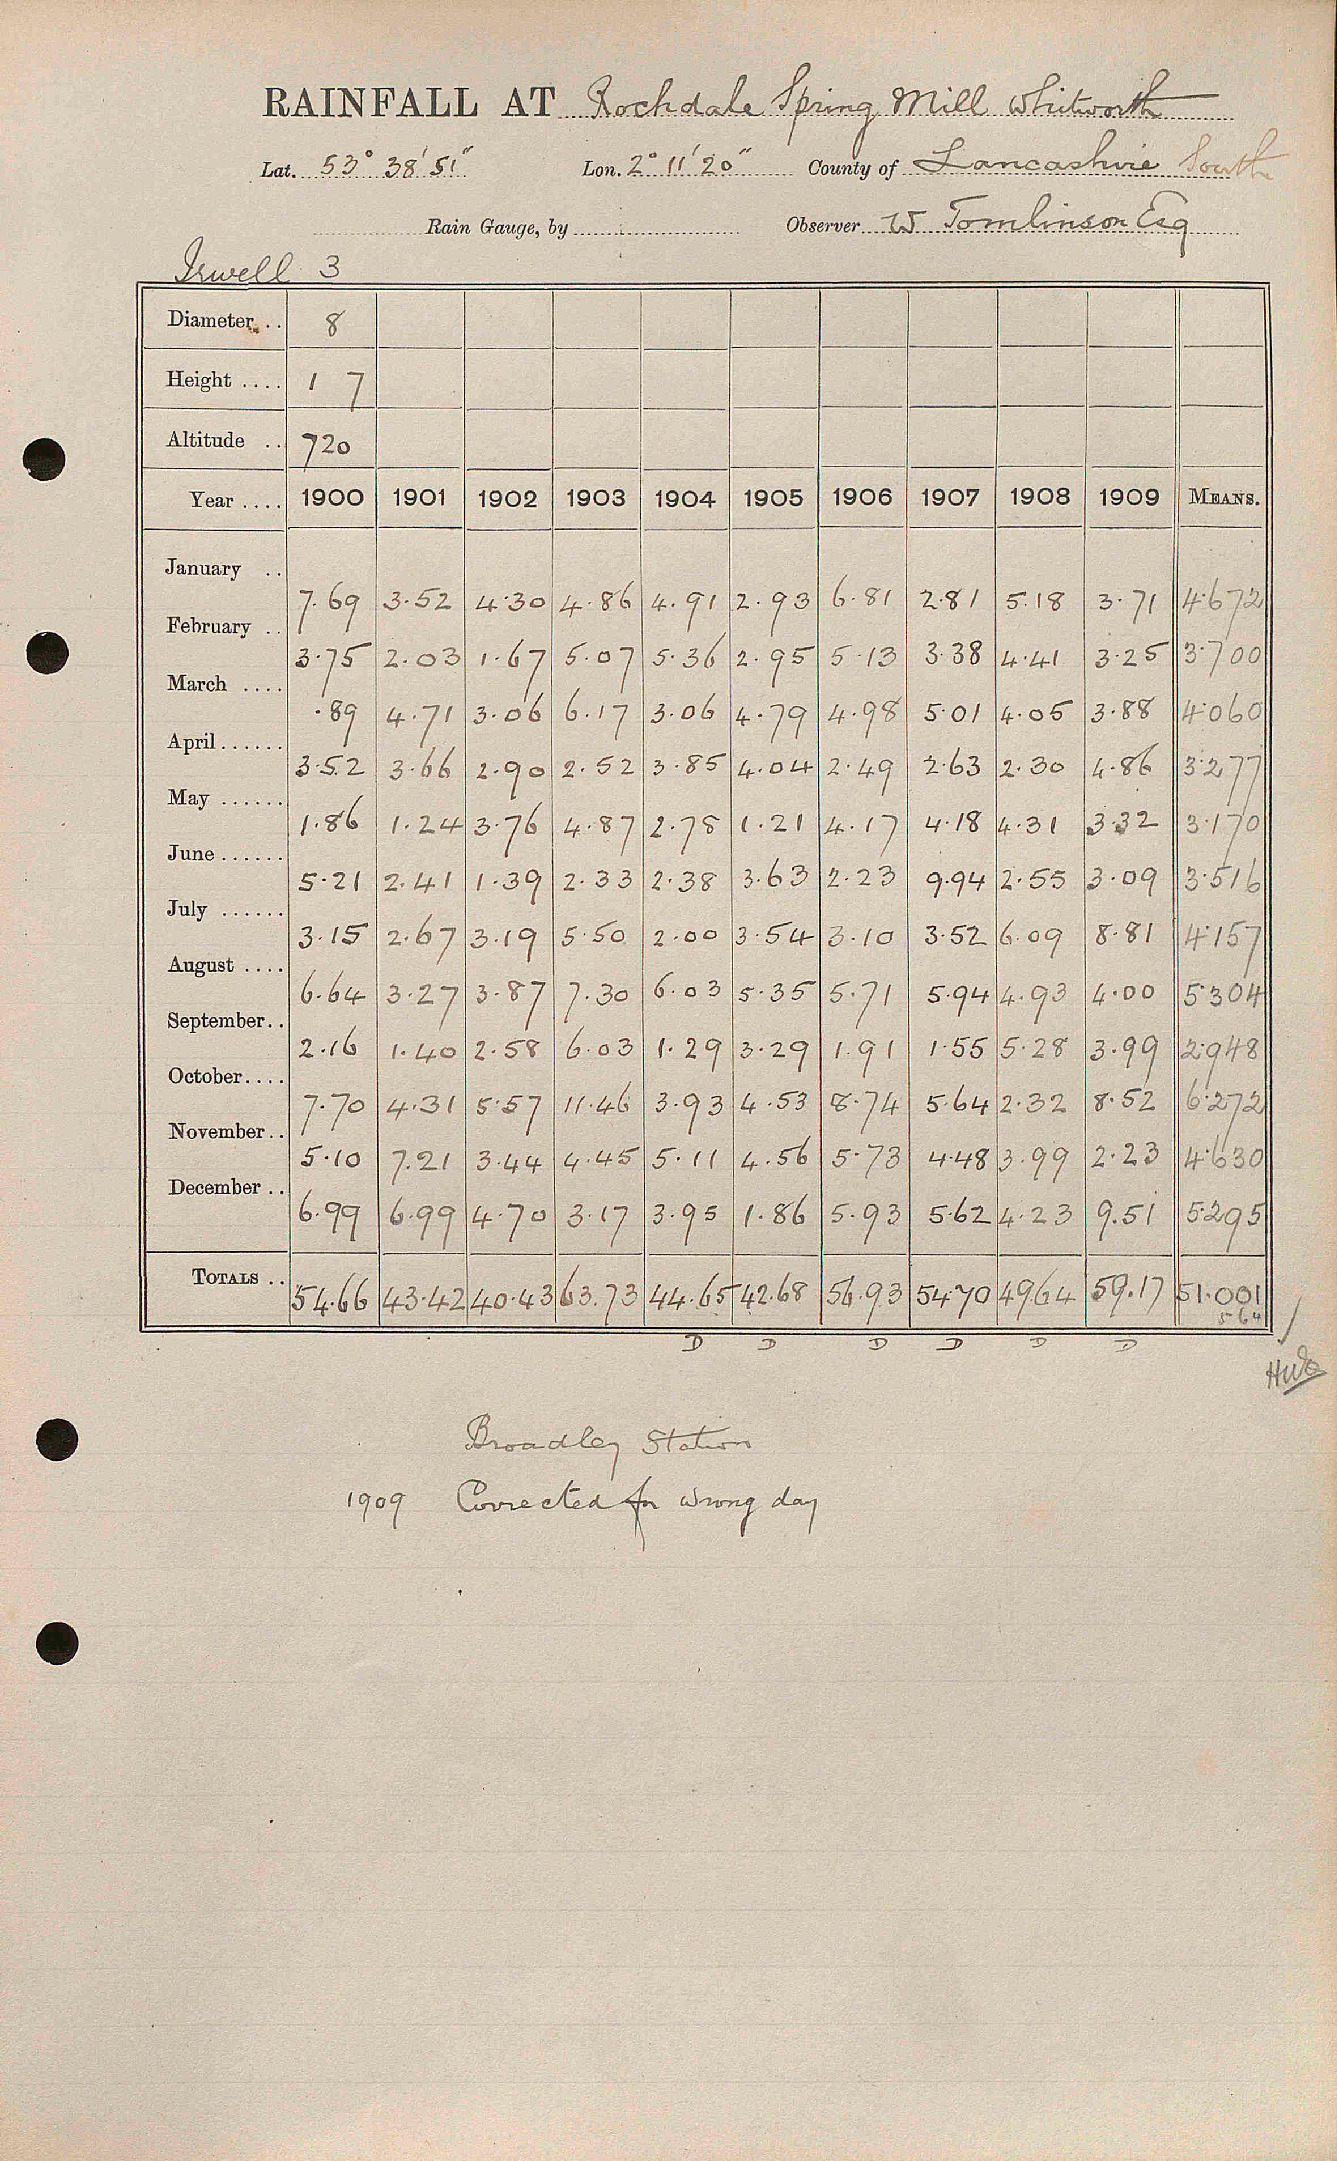 RAINFALL AT Rochdale Spring Mill Whitworth
Lat. 53° 38' 51" Lon. 2° 11' 20" County of Lancashire South
Rain Gauge, by Observer W Tomlinson Esq
Irwell 3
Diameter .. 8
Height .... 1 7
Altitude .. 720
Year .... 1900 1901 1902 1903 1904 1905 1906 1907 1908 1909 MEANS.
January .. 7.69 3.52 4.30 4.86 4.91 2.93 6.81 2.81 5.18 3.71 4.672
February .. 3.75 2.03 1.67 5.07 5.36 2.95 5.13 3.38 4.41 3.25 3.700
March .... .89 4.71 3.06 6.17 3.06 4.79 4.98 5.01 4.05 3.88 4.060
April ...... 3.52 3.66 2.90 2.52 3.85 4.04 2.49 2.63 2.30 4.86 3.277
May ...... 1.86 1.24 3.76 4.87 2.78 1.21 4.17 4.18 4.31 3.32 3.170
June ...... 5.21 2.41 1.39 2.33 2.38 3.63 2.23 9.94 2.55 3.09 3.516
July ...... 3.15 2.67 3.19 5.50 2.00 3.54 3.10 3.52 6.09 8.81 4.157
August .... 6.64 3.27 3.87 7.30 6.03 5.35 5.71 5.94 4.93 4.00 5.304
September.. 2.16 1.40 2.58 6.03 1.29 3.29 1.91 1.55 5.28 3.99 2.948
October.... 7.70 4.31 5.57 11.46 3.93 4.53 8.74 5.64 2.32 8.52 6.272
November.. 5.10 7.21 3.44 4.45 5.11 4.56 5.73 4.48 3.99 2.23 4.630
December .. 6.99 6.99 4.70 3.17 3.95 1.86 5.93 5.62 4.23 9.51 5.295
TOTALS .. 54.66 43.42 40.43 63.73 44.65 42.68 56.93 54.70 49.64 59.17 51.001
564
D D D D D D
Broadley Station
1909 Corrected for wrong day